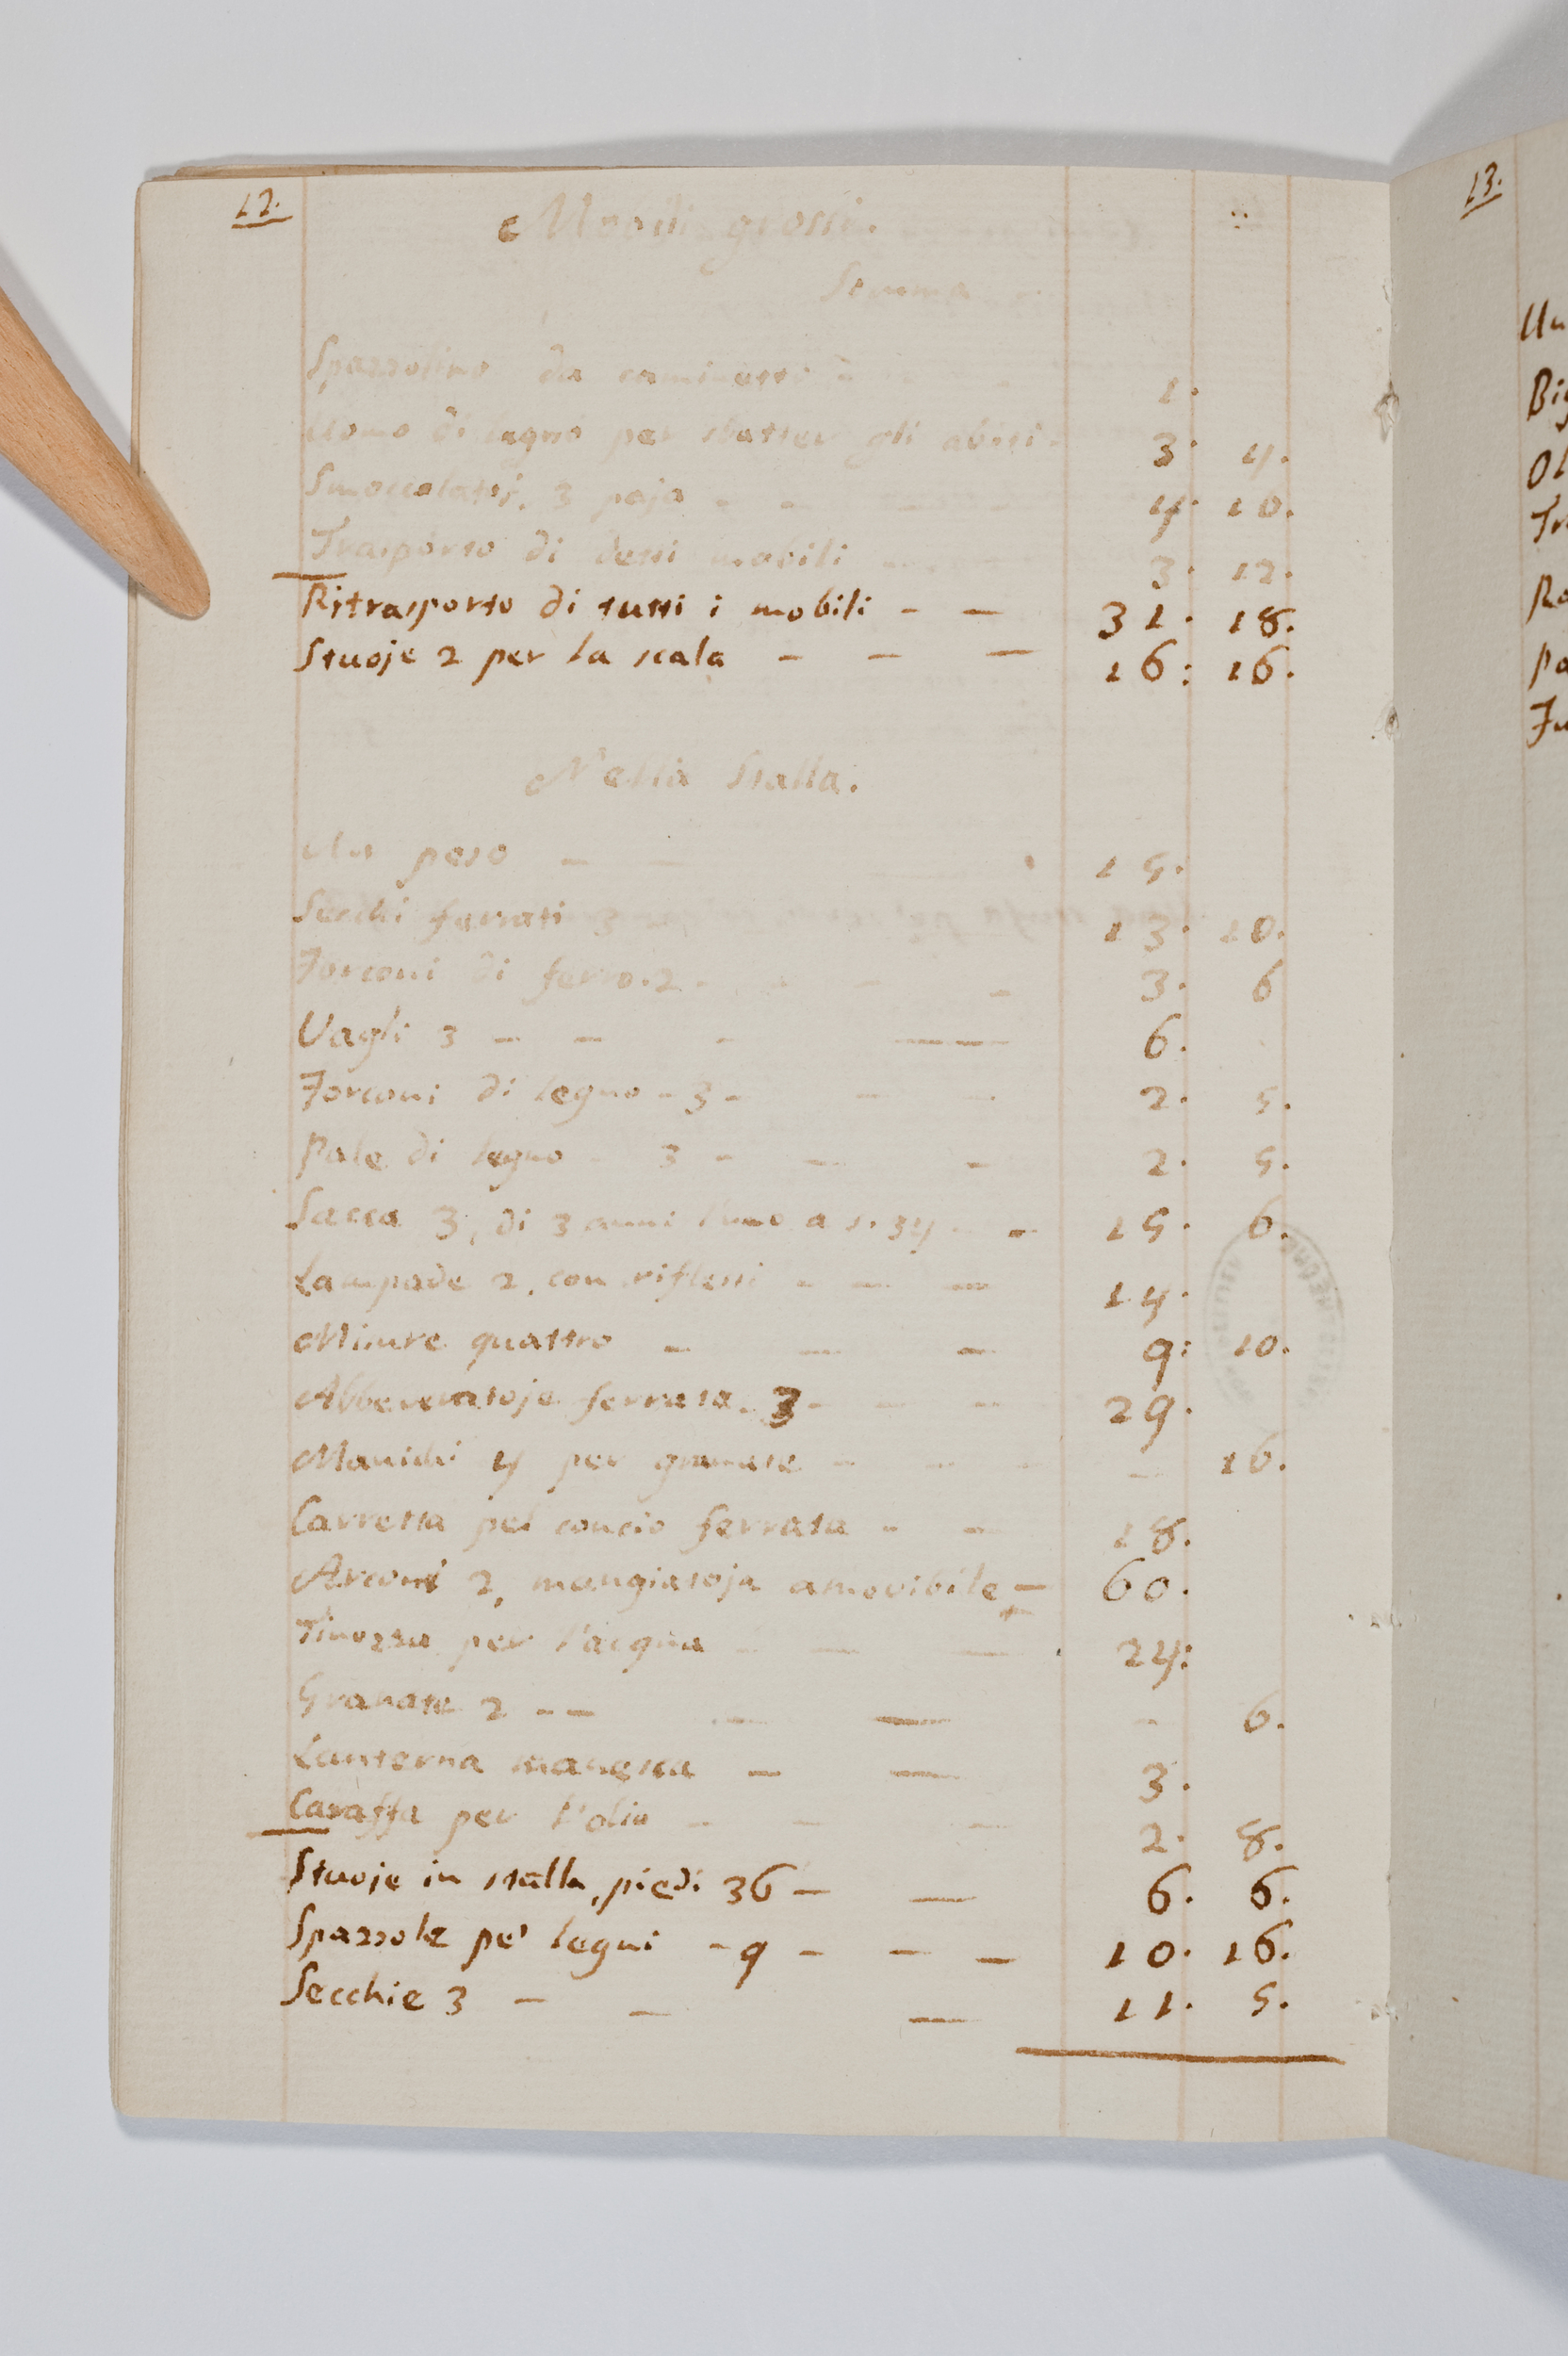 12.
Mobili grossi.
Somma
Spazzolino da caminetti - 1.
Uomo di legno per sbatter gli abiti. 3. 4.
Smoccolatoj. 3 paja - - 4. 10.
Trasporto di detti mobili 3. 12.
Ritrasporto di tutti i mobili - - 31. 18.
Stuoje 2 per la scala - - - 16: 16.
Nella stalla.
Un peso - - 15.
Secchi ferrati 3 13. 10.
Forconi di ferro. 2 - - - - 3. 6
Vagli 3 - - - - 6.
Forconi di legno - 3 - - - 2. 5.
Pale di legno - 3 - - - 2. 5.
Sacca 3, di 3 l'uno a s. 34 - - 15. 6.
Lampade 2. con riflessi - - - 14.
Misure quattro - - - 9: 10.
Abbeveratoje ferrata. 3 - - - 29.
Manichi 4 per granate - - - - 16.
Carretta pel concio ferrata - - 18.
Arconi 2, mangiatoja amovibile - 60.
Tinozza per l'acqua - - - 24:
Granate 2 - - - - - 6.
Lanterna - - 3.
Caraffa per l'olio - - - 2. 8.
Stuoje in stalla, piedi 36 - - 6. 6.
Spazzole pe' legni - 9 - - - 10. 16.
Secchie 3 - - - 11. 5.
13.
Un
Big
Ol
Tr
Ro
Pa
Fu